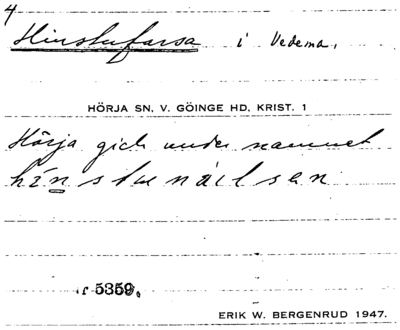 4
Hinstafarsa i Vedema.
HÖRJA SN, V. GÖINGE HD, KRIST. 1
Hörja gick under namnet
r 5359.
ERIK W. BERGENRUD 1947.